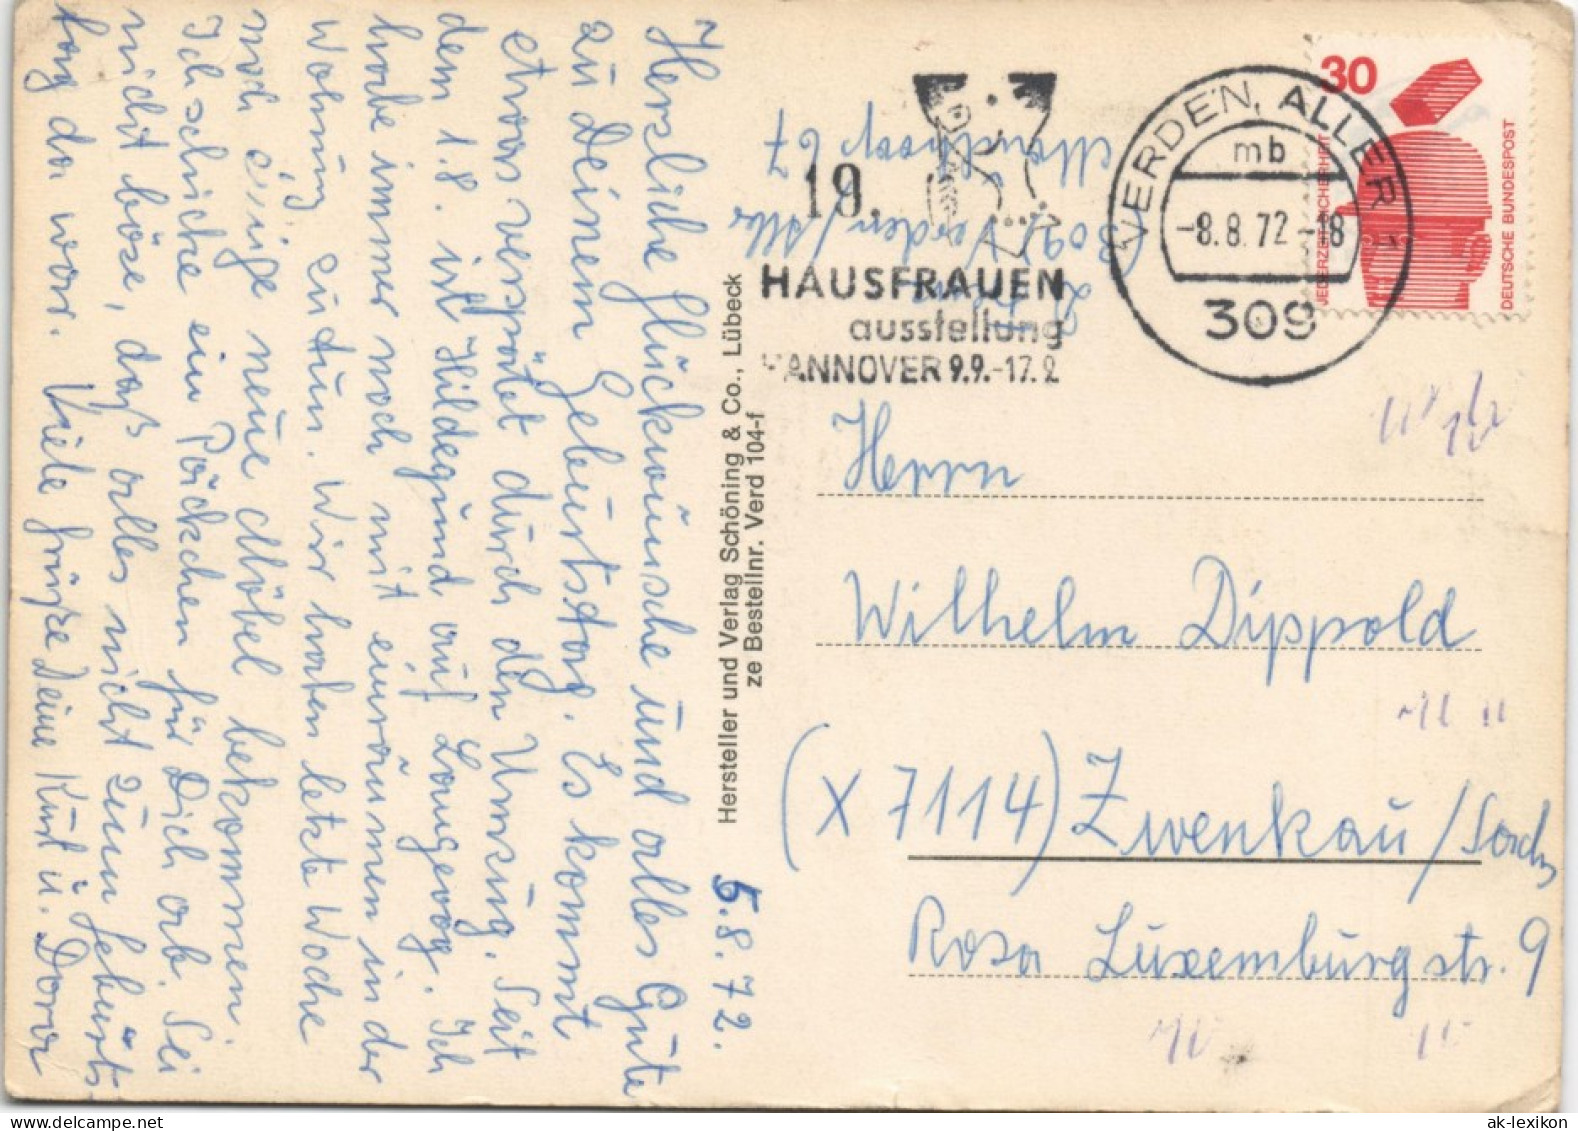 5.8.72.
Herzliche Glückwünsche und alles Gute
zu Deinem Geburtstag. Es kommt
etwas verspätet durch den Umzug. Seit
dem 1.8. ist Hildegund auf Langeoog. Ich
habe immer noch mit einräumen in der
Wohnung zu tun. Wir haben letzte Woche
noch einige neue Möbel bekommen.
Ich schicke ein Päckchen für Dich ab. Sei
nicht böse, daß alles nicht zum Geburts-
tag da war. Viele Grüße Deine Kurt u. Dora
Hersteller und Verlag Schöning & Co., Lübeck
ze Bestellnr. Verd 104-f
(309) Verden/Aller
67
19.
HAUSFRAUEN
ausstellung
HANNOVER 9.9.-17.9
VERDEN, ALLER 1
mb
-8.8.72-18
309
30
JEDERZEIT SICHERHEIT
DEUTSCHE BUNDESPOST
Herrn
Wilhelm Dippold
(X 7114) Zwenkau/Sachs
Rosa Luxemburgstr. 9
ak-lexikon